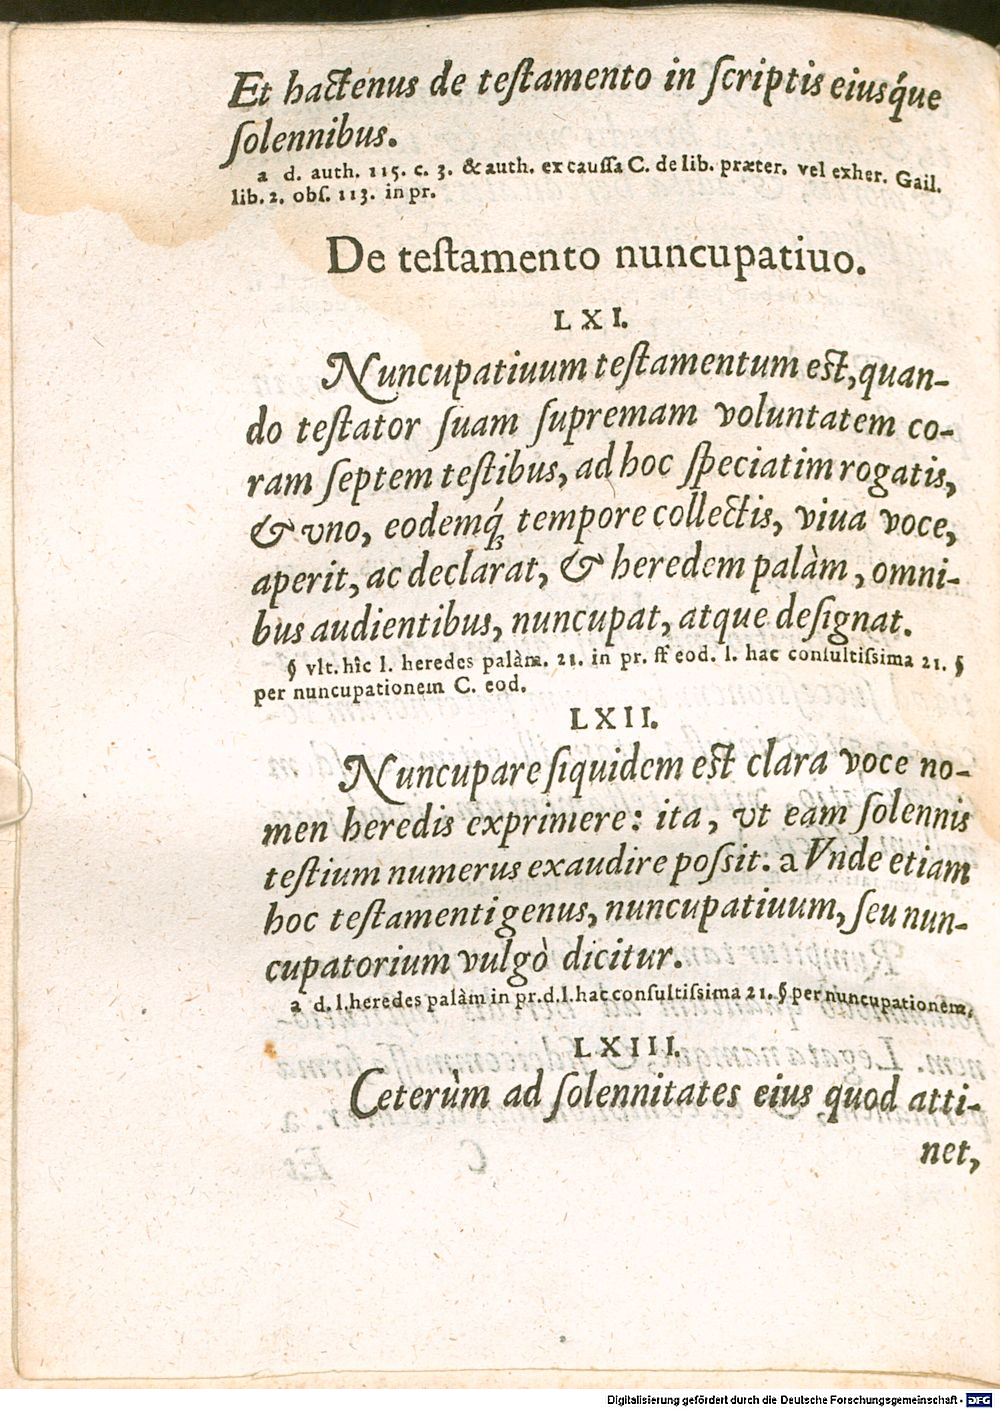 Et hactenus de testamento in scriptis eiusq́ue
solennibus.
a d. auth. 115. c. 3. & auth. ex caussa C. de lib. præter. vel exher. Gail.
lib. 2. obs. 113. in pr.
De testamento nuncupatiuo.
LXI.
Nuncupatiuum testamentum est, quan-
do testator suam supremam voluntatem co-
ram septem testibus, ad hoc speciatim rogatis,
& vno, eodemq́; tempore collectis, viua voce,
aperit, ac declarat, & heredem palàm, omni-
bus audientibus, nuncupat, atque designat.
§ vlt. hîc l. heredes palàm. 21. in pr. ff eod. l. hac consultissima 21. §
per nuncupationem C. eod.
LXII.
Nuncupare siquidem est clara voce no-
men heredis exprimere: ita, vt eam solennis
testium numerus exaudire possit. a Vnde etiam
hoc testamenti genus, nuncupatiuum, seu nun-
cupatorium vulgò dicitur.
a d. l. heredes palàm in pr. d. l. hac consultissima 21. § per nuncupationem,
LXIII.
Ceterùm ad solennitates eius quod atti-
net,
Digitalisierung gefördert durch die Deutsche Forschungsgemeinschaft - DFG